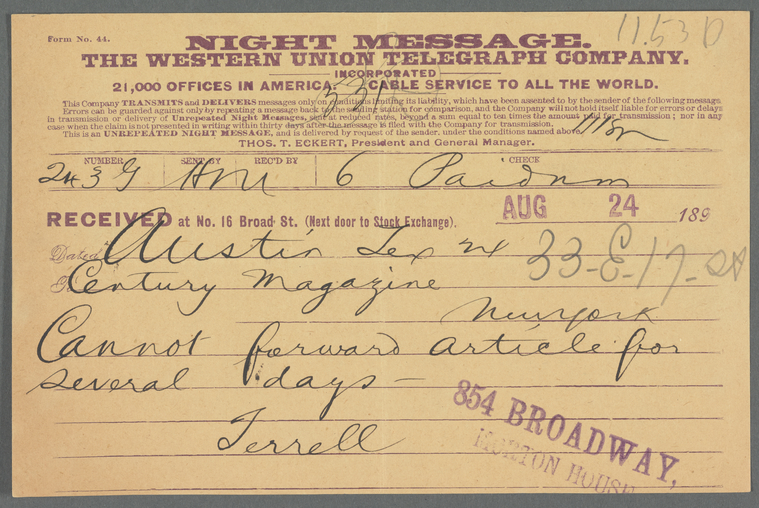 Form No. 44.
11.53 D
NIGHT MESSAGE.
THE WESTERN UNION TELEGRAPH COMPANY.
INCORPORATED
21,000 OFFICES IN AMERICA. CABLE SERVICE TO ALL THE WORLD.
This Company TRANSMITS and DELIVERS messages only on conditions limiting its liability, which have been assented to by the sender of the following message.
Errors can be guarded against only by repeating a message back to the sending station for comparison, and the Company will not hold itself liable for errors or delays
in transmission or delivery of Unrepeated Night Messages, sent at reduced rates, beyond a sum equal to ten times the amount paid for transmission; nor in any
case when the claim is not presented in writing within thirty days after the message is filed with the Company for transmission.
This is an UNREPEATED NIGHT MESSAGE, and is delivered by request of the sender, under the conditions named above.
THOS. T. ECKERT, President and General Manager.
NUMBER SENT BY REC'D BY CHECK
243 G 6 Paid nm
RECEIVED at No. 16 Broad St. (Next door to Stock Exchange). AUG 24 189
Dated Austin Tex 24
33-E-17-St
To Century Magazine
New York
Cannot forward article for
several days —
Terrell
854 BROADWAY,
MORTON HOUSE